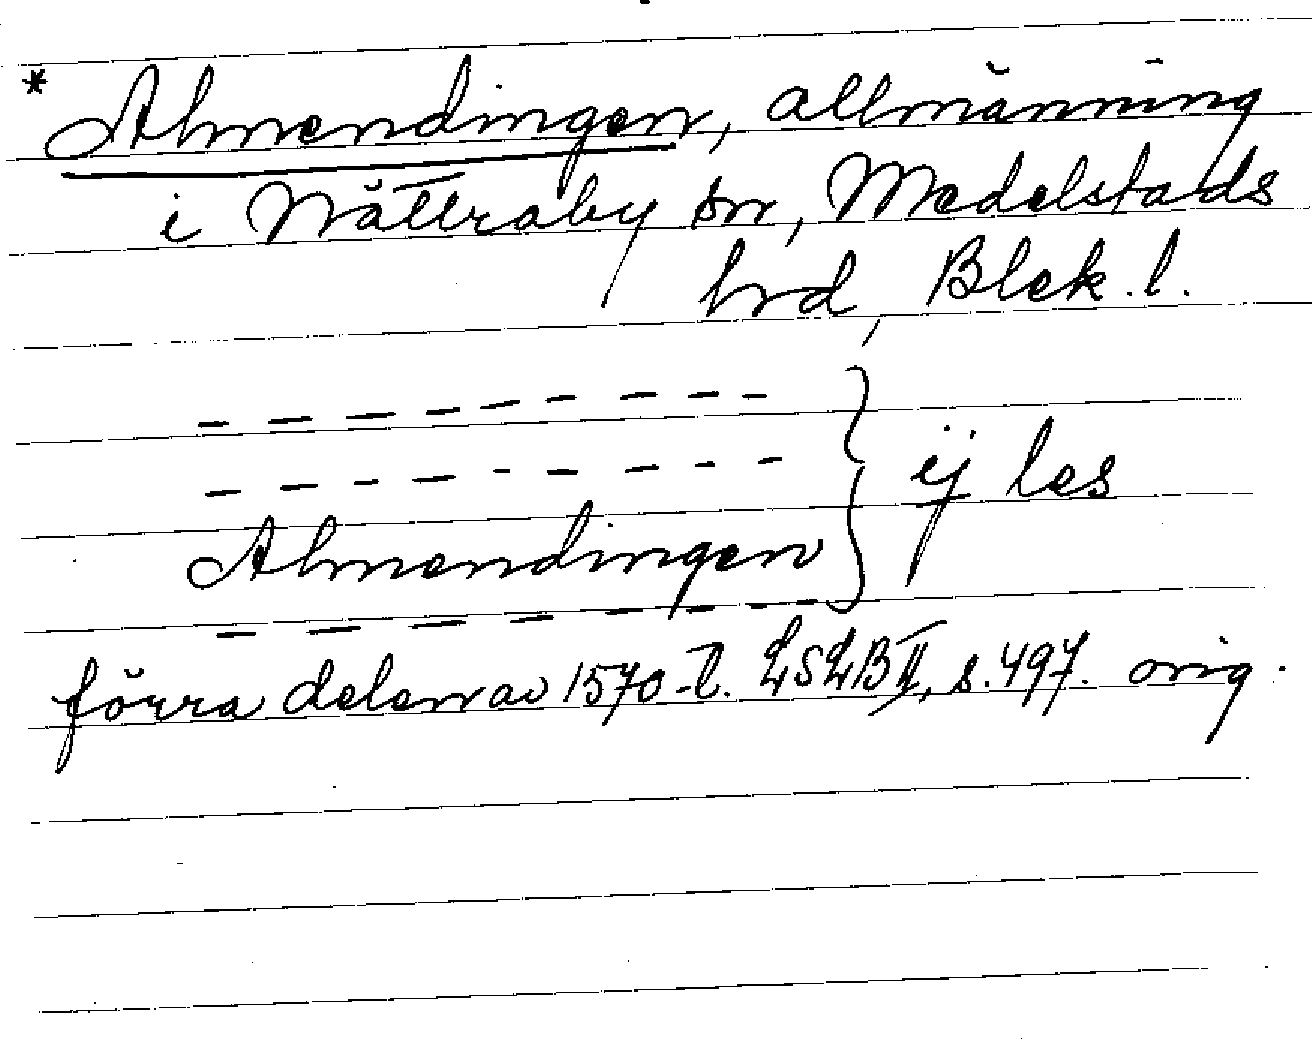 * Almendingen, allmänning
i Nättraby sn, Medelstads
hrd, Blek. l.
– – – – – – – –
– – – – – – – –
Almendingen } ej läs
– – – – – – –
förra delen av 1570-t. LSLB II, s. 497. orig.